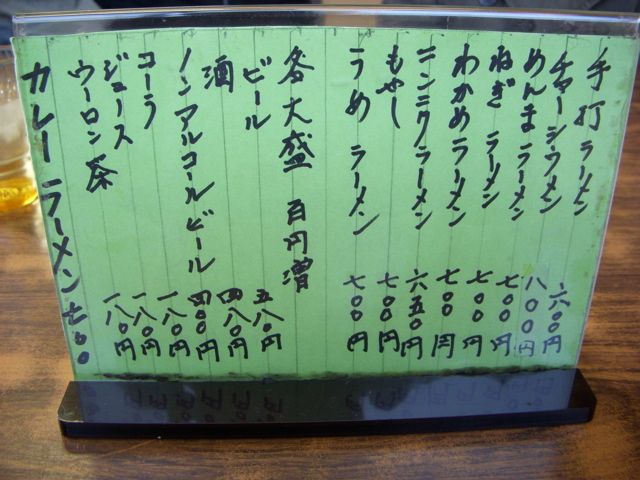 手打ラーメン 六〇〇円
チャーシウメン 八〇〇円
めんまラーメン 七〇〇円
ねぎ ラーメン 七〇〇円
わかめラーメン 七〇〇円
ニンニクラーメン 六五〇円
もやし 七〇〇円
うめ ラーメン 七〇〇円
各大盛 百円増
ビール 五八〇円
酒 四八〇円
ノンアルコールビール 四〇〇円
コーラ 一八〇円
ジュース 一八〇円
ウーロン茶 一八〇円
カレー ラーメン 七〇〇